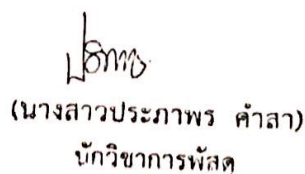 (นางสาวประภาพร คำสา)
นักวิชาการพัสดุ